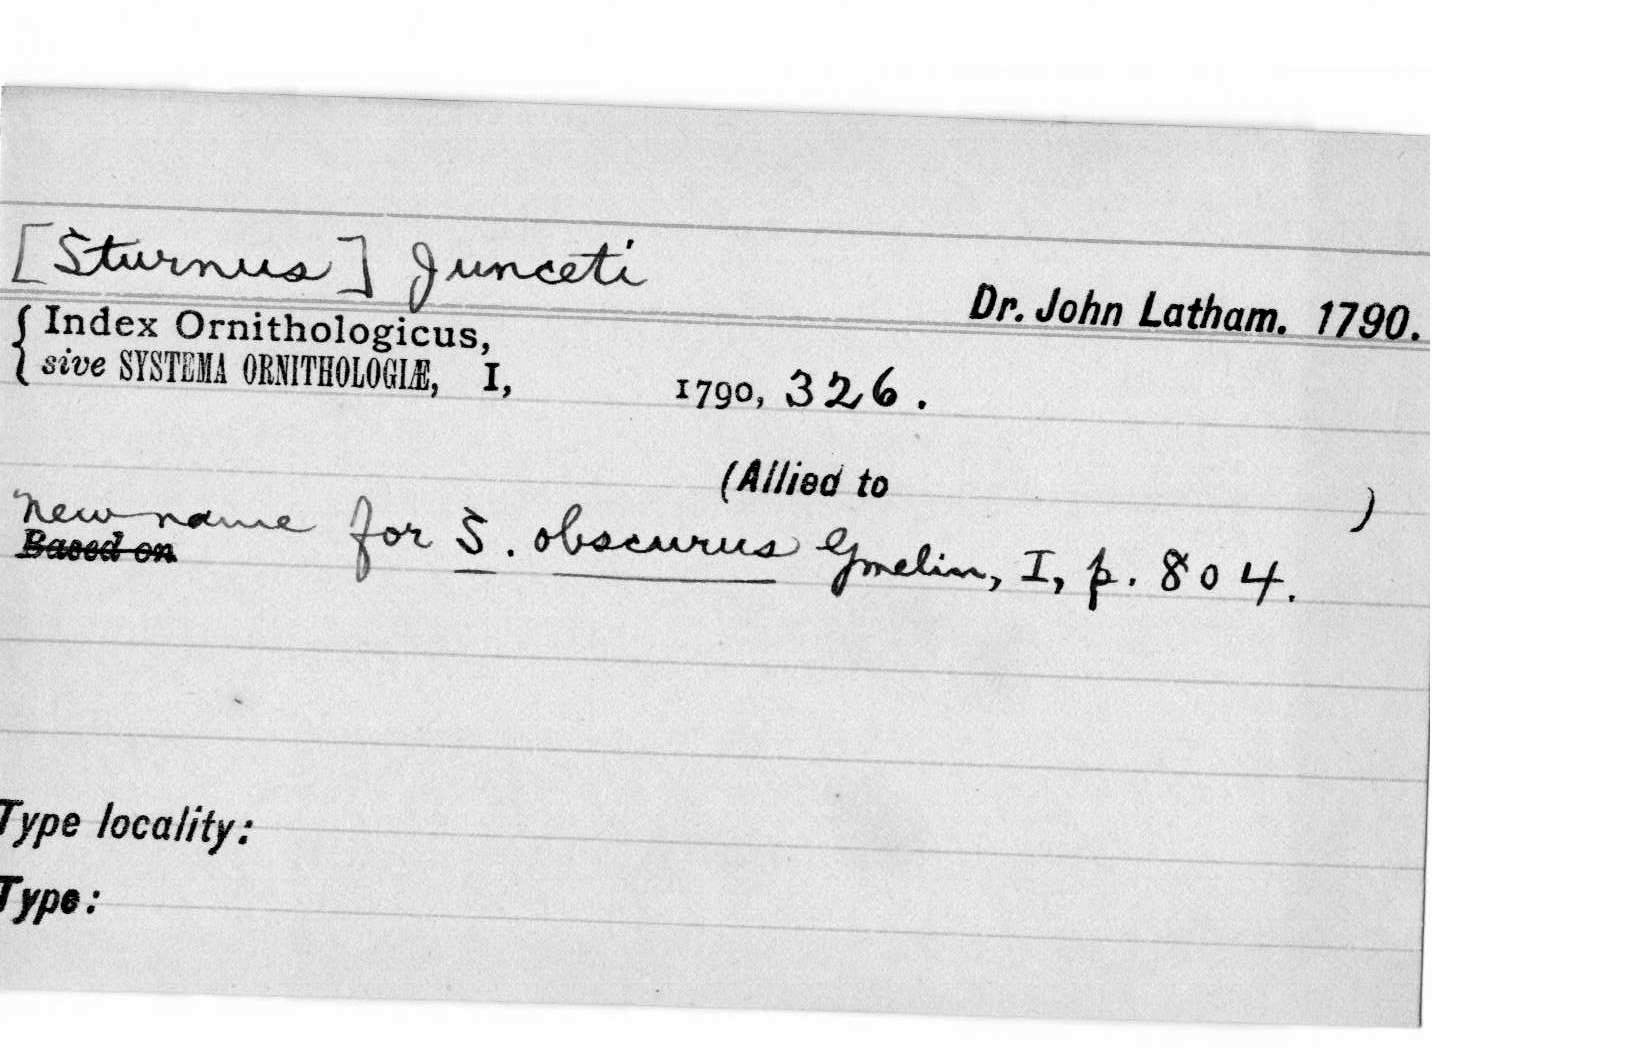 [Sturnus] Junceti
Dr. John Latham. 1790.
Index Ornithologicus,
sive SYSTEMA ORNITHOLOGIÆ, I, 1790, 326.
(Allied to )
New name for S. obscurus Gmelin, I, p. 804.
Based on
Type locality:
Type: